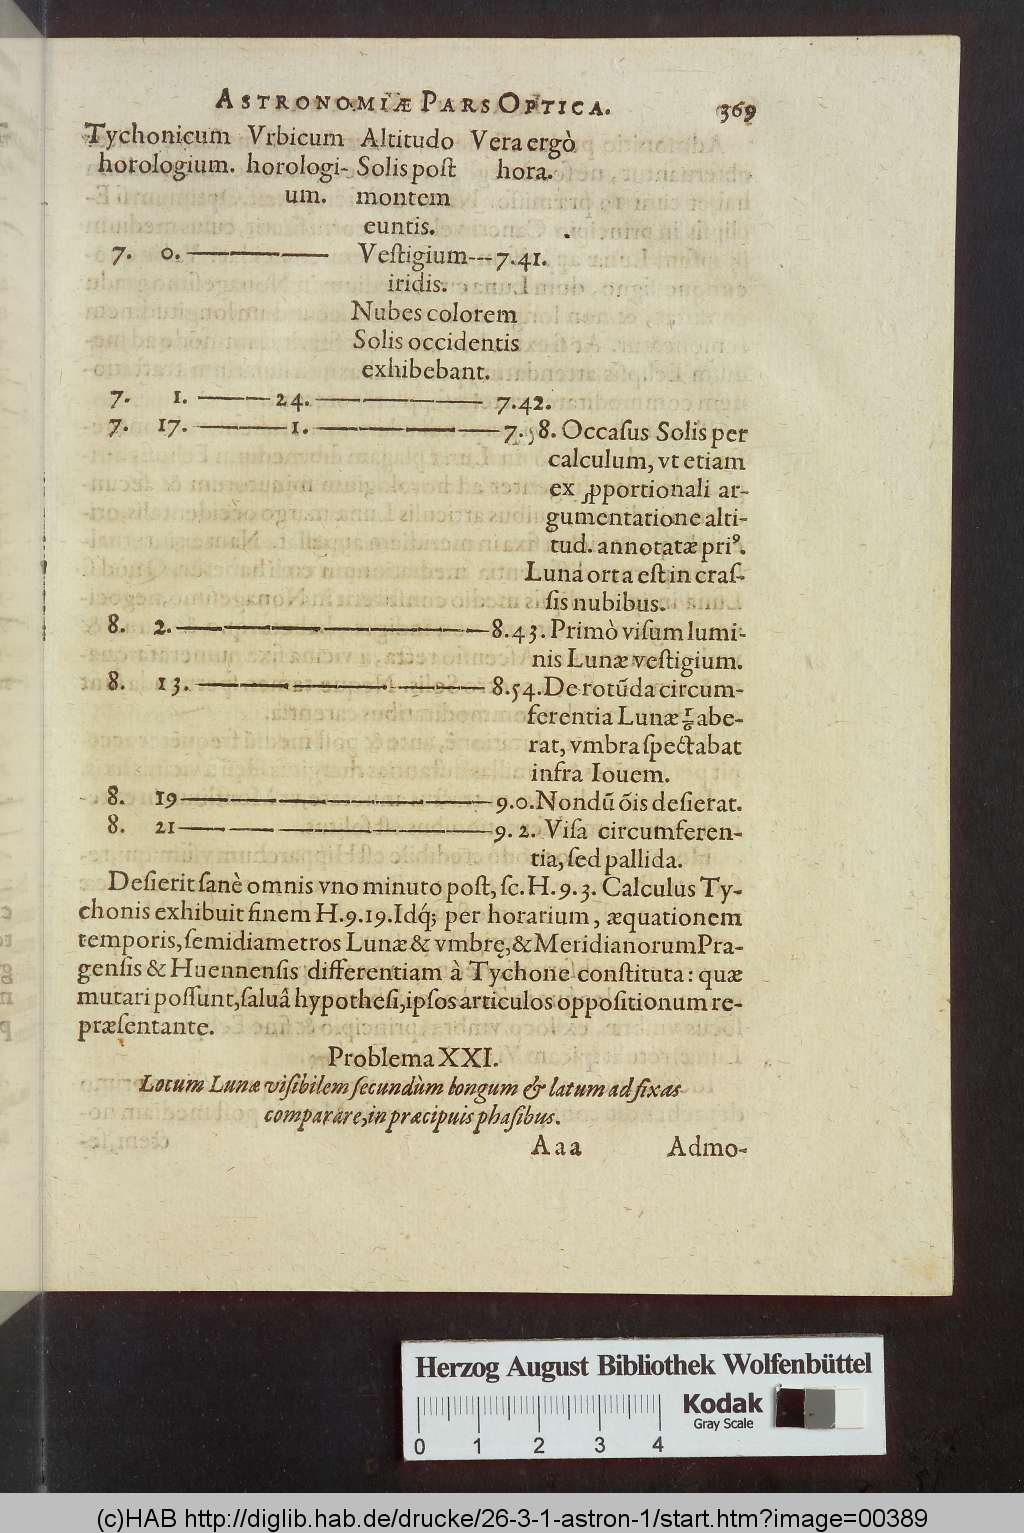 ASTRONOMIÆ PARS OPTICA. 369
Tychonicum Vrbicum Altitudo Vera ergò
horologium. horologi- Solis poſt hora.
um. montem
euntis.
7. 0. ——— Veſtigium---7.41.
iridis.
Nubes colorem
Solis occidentis
exhibebant.
7. 1. ——— 24. ——— 7.42.
7. 17. ——— 1. ——— 7.58. Occaſus Solis per
calculum, vt etiam
ex ꝓportionali ar-
gumentatione alti-
tud. annotatæ priꝰ.
Luna orta eſt in craſ-
ſis nubibus.
8. 2. ——— 8.43. Primò viſum lumi-
nis Lunæ veſtigium.
8. 13. ——— 8.54. De rotūda circum-
ferentia Lunæ 1/6 abe-
rat, vmbra ſpectabat
infra Iouem.
8. 19 ——— 9.0. Nondū õis deſierat.
8. 21 ——— 9.2. Viſa circumferen-
tia, ſed pallida.
Deſierit ſanè omnis vno minuto poſt, ſc. H. 9. 3. Calculus Ty-
chonis exhibuit finem H. 9. 19. Idq́; per horarium, æquationem
temporis, ſemidiametros Lunæ & vmbrę, & Meridianorum Pra-
genſis & Huennenſis differentiam à Tychone conſtituta: quæ
mutari poſſunt, ſaluâ hypotheſi, ipſos articulos oppoſitionum re-
præſentante.
Problema XXI.
Locum Lunæ viſibilem ſecundùm longum & latum ad fixas
comparare, in præcipuis phaſibus.
Aaa Admo-
Herzog August Bibliothek Wolfenbüttel
Kodak
Gray Scale
0 1 2 3 4
(c)HAB http://diglib.hab.de/drucke/26-3-1-astron-1/start.htm?image=00389